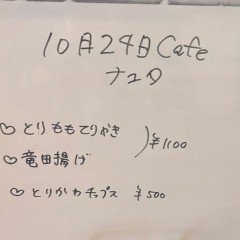 10月24日Cafe
ナユタ
♡とりももてりやき
♡竜田揚げ
¥1100
♡とりかわチップス ¥500